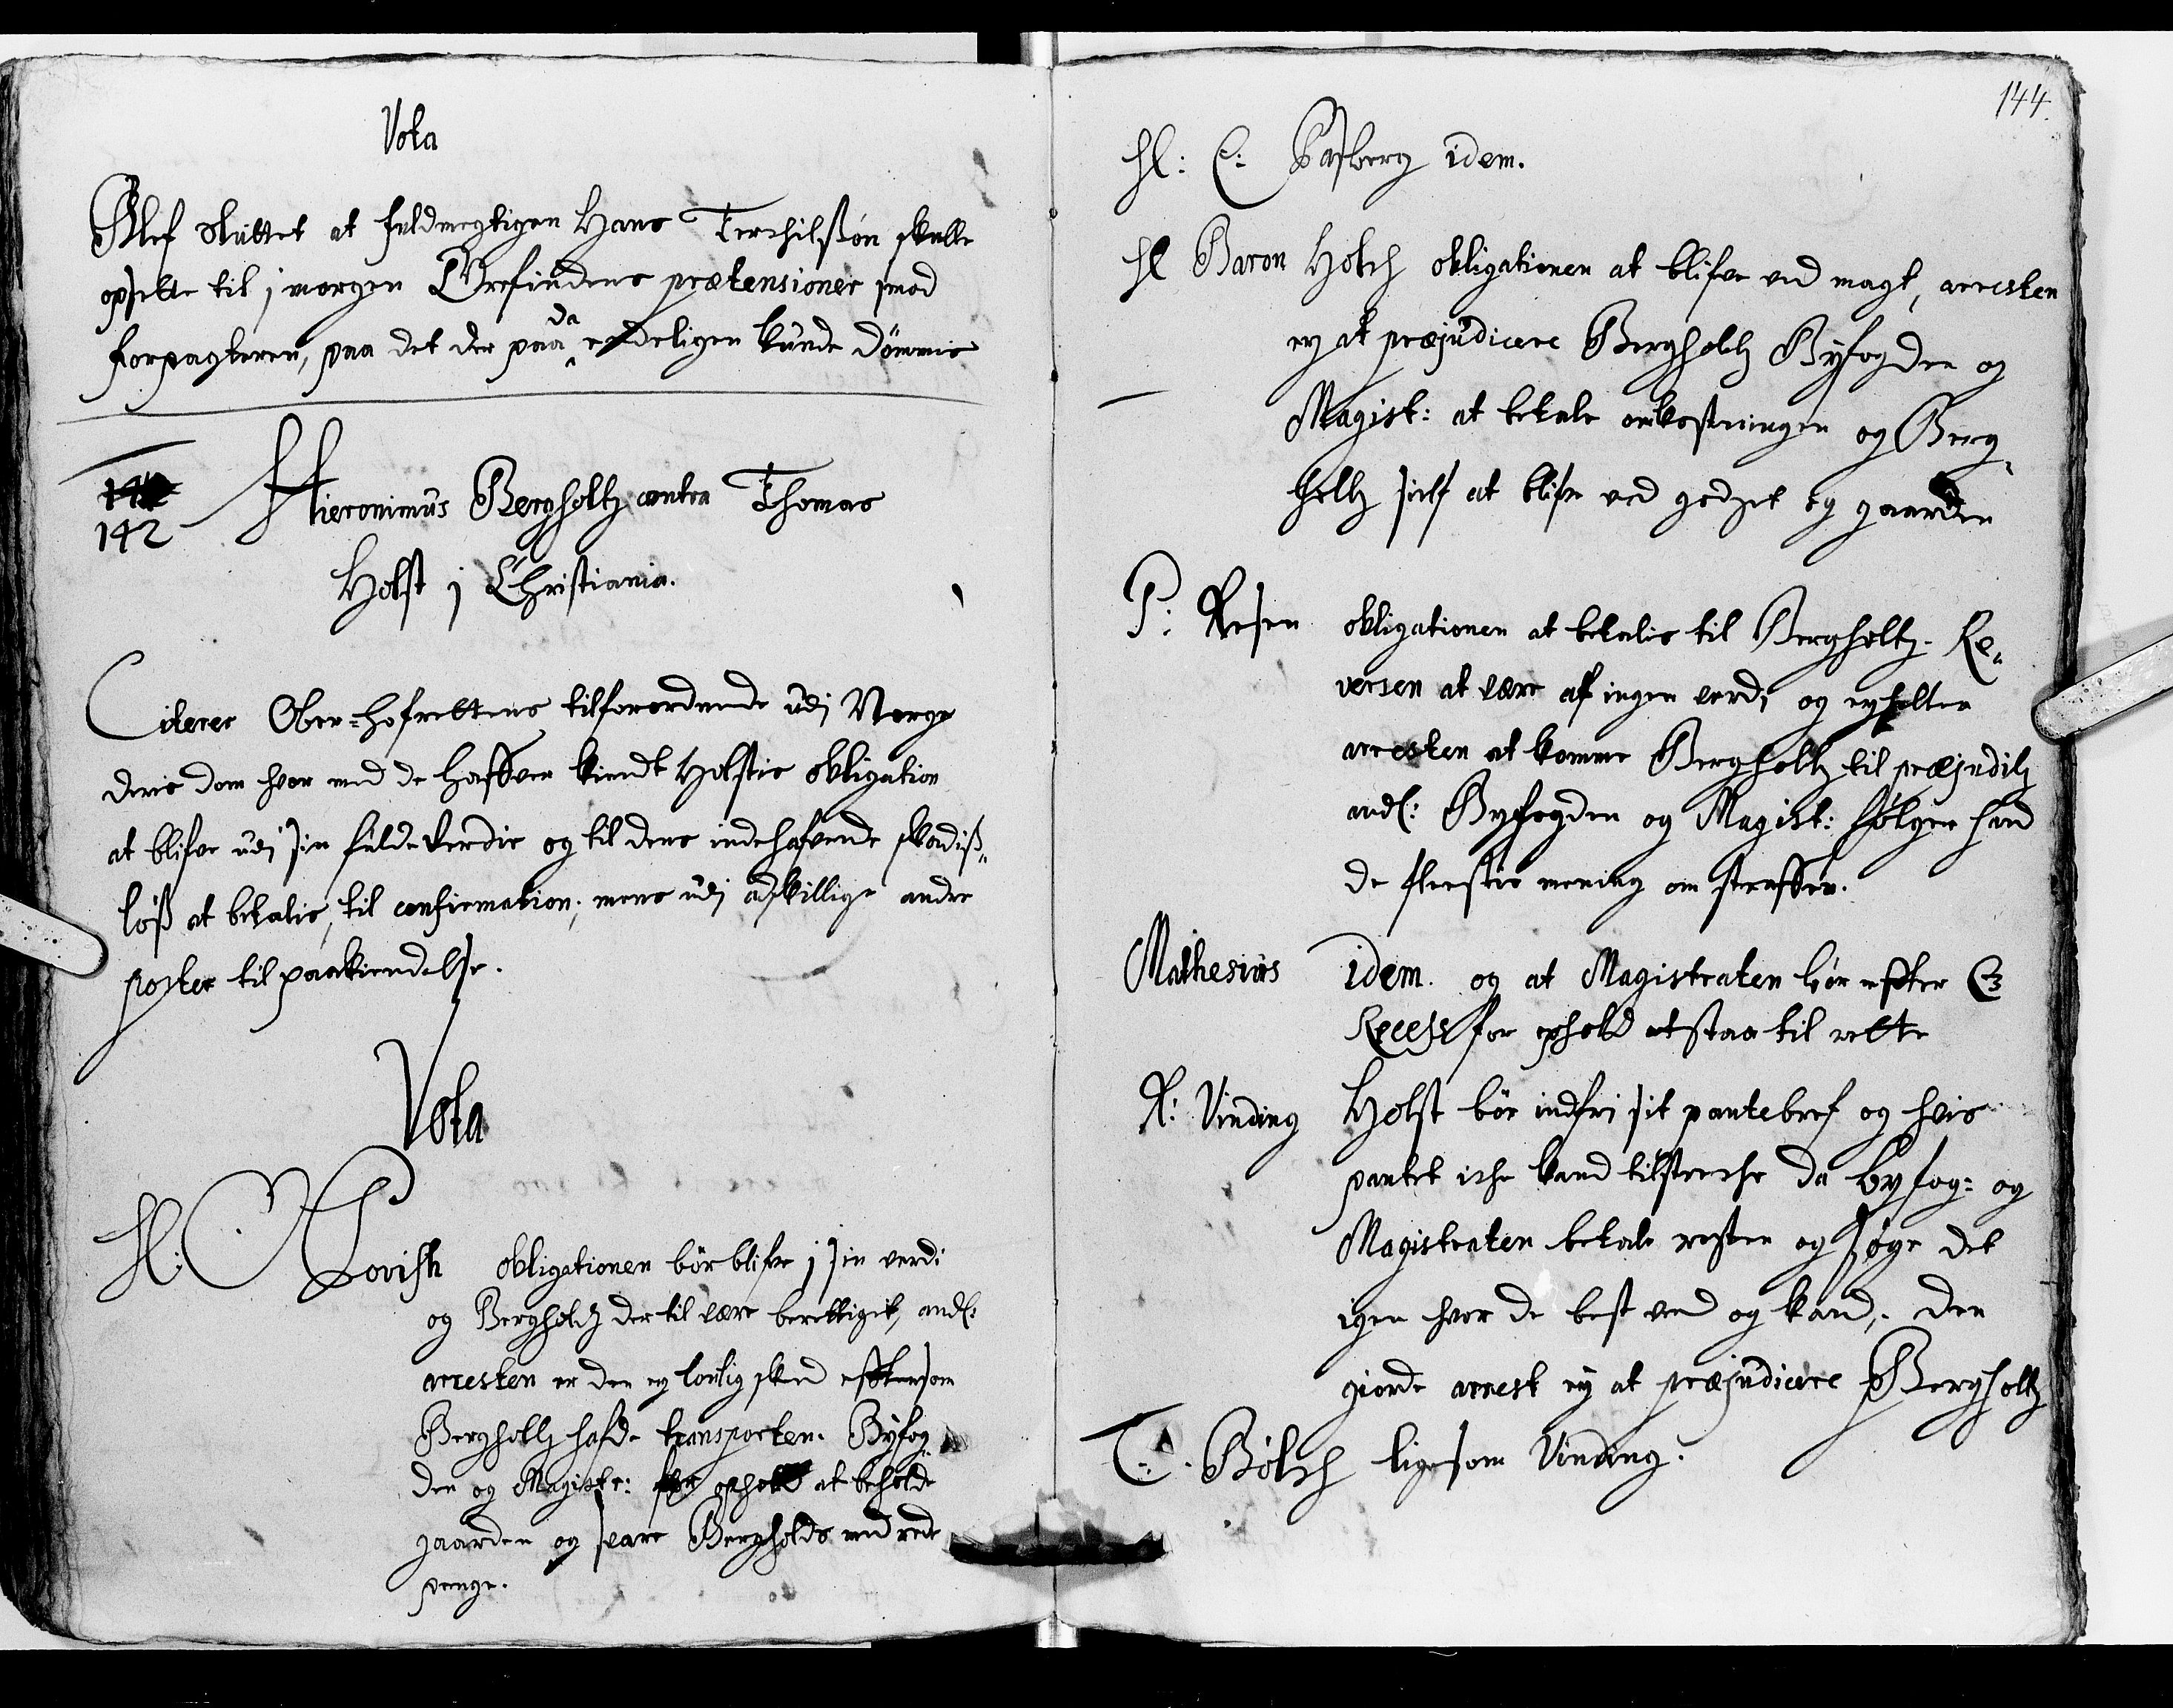 Vota
Blef sluttet at fuldmegtigen Hans Terchilßøn skulle
opsette til j morgen Grefindens prætensioner jmod
forpagteren, paa det der paa da endeligen kunde dømmis
142
Hieronimus Bergholtz contra Thomas
Holst j Christiania.
Citerer Ober-hofrettens tilforordnede udj Norge
deris dom hvor med de haffver kiendt Holstis obligation
at blifve udj sin fulde verdie og til dens indehafvende skadiß„
løß at betalis, til confirmation; mens udj adskillige andre
poster til paakiendelse.
Vota
Hl: Povisk obligationen bør blifve j sin verdi
og Bergholtz der til være berettiget, andl:
arresten er den ey lovlig skeed efftersom
Bergholtz hafde transporten. Byfog„
den og Magistr: for ophold at beholde
gaarden og svare Bergholds med rede
penge.
144.
Hl: C: Pasberg idem.
Hl Baron Holch obligationen at blifve ved magt, arresten
ey at præjudicere Bergholtz Byfogden og
Magist: at betale omkostningen og Berg„
holtz self at blifve ved godzet og gaarden
P: Resen obligationen at betalis til Bergholtz. Re„
versen at være af ingen verdj og ey heller
arresten at komme Bergholtz til præjuditz
andl: Byfogden og Magist: følger hand
de fleestis mening om straffen.
Mathesius idem. og at Magistraten bør effter
Recess for ophold at staa til rette
R: Vinding Holst bør indfri sit pantebref og hvis
pantet iche kand tilstreche da byfog: og
Magistraten betale resten og søge det
igen hvor de best ved og kand, den
giorde arrest ey at præjudicere Bergholtz
C. Bølch ligesom Vinding.